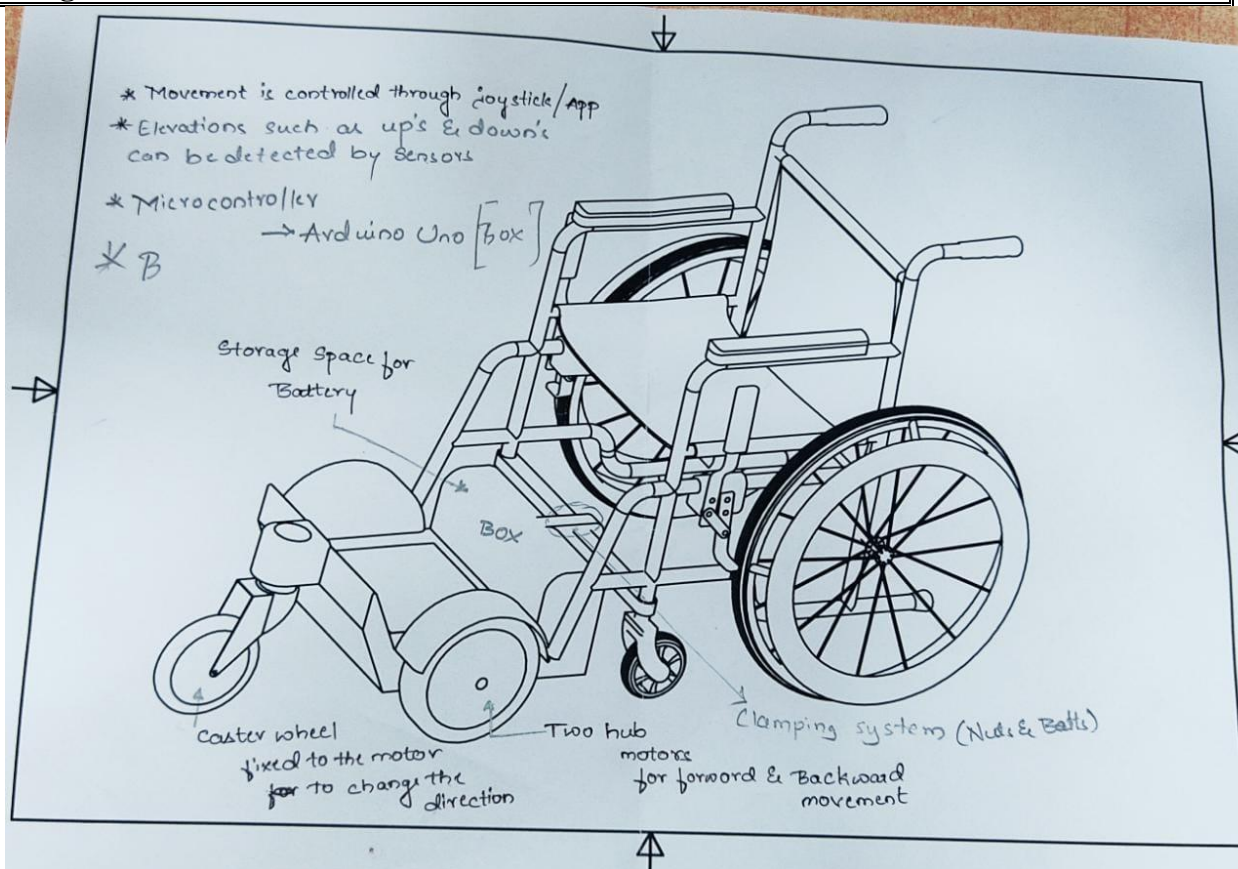 * Movement is controlled through joystick/App
* Elevations such as up's & down's
can be detected by sensors
* Microcontroller
→ Arduino Uno [Box]
* B
Storage space for
Battery
BOX
Caster wheel
fixed to the motor
to change the
direction
Two hub
motors
for forword & Backward
movement
Clamping system (Nuts & Bolts)